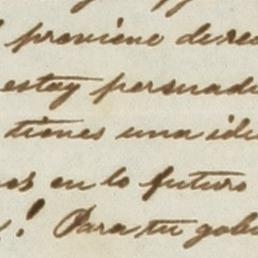 proviene de rec
estoy persuad
tienes una ide
os en lo futuro
! Para tu gob